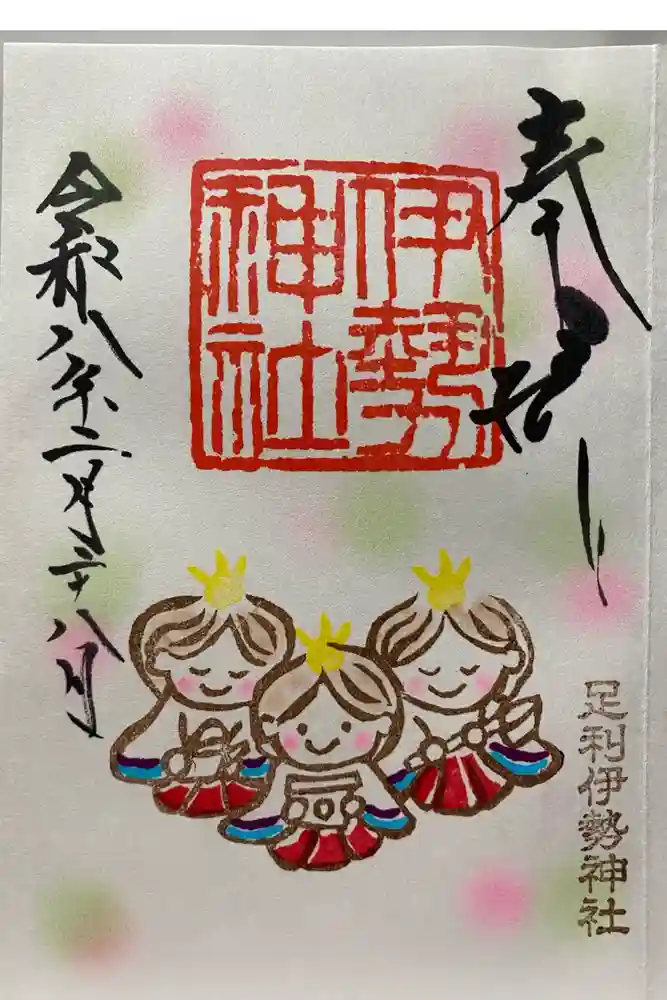 奉拝
伊勢
神社
足利伊勢神社
令和八年二月二十八日